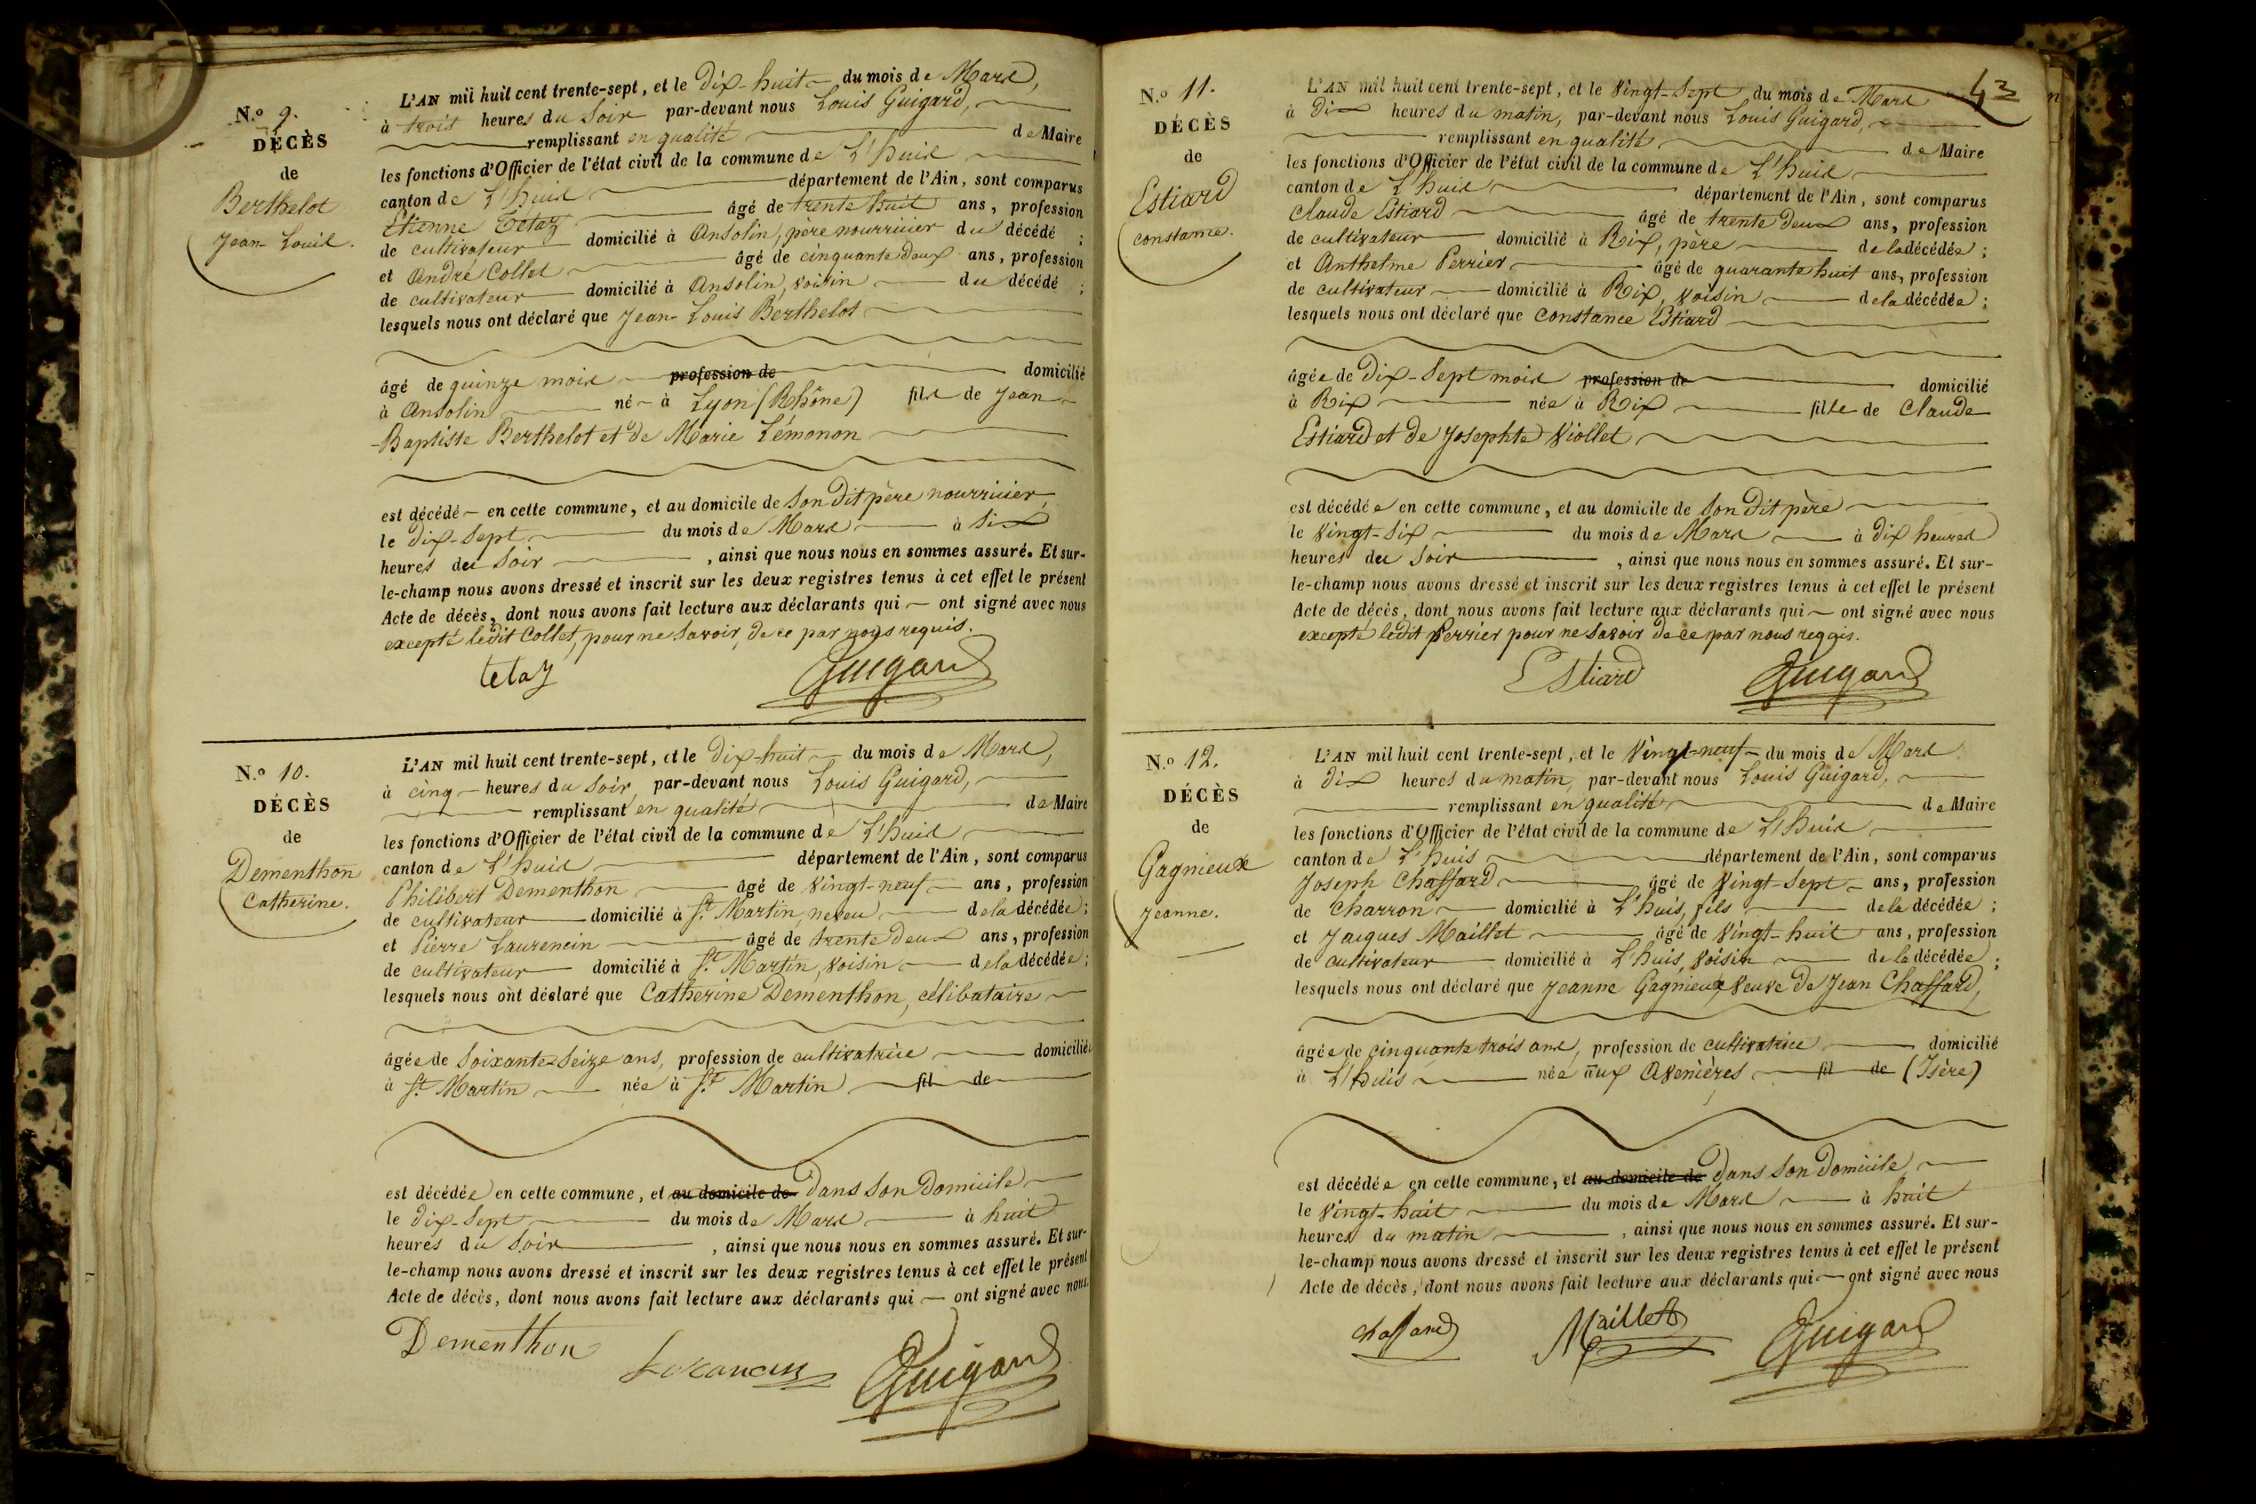 N.o 9.
DÉCÈS
de
Berthelot
Jean-Louis.
L'AN mil huit cent trente-sept, et le Dix-huit du mois de Mars,
à trois heures du Soir par-devant nous Louis Guigard,
remplissant en qualité de Maire
les fonctions d'Officier de l'état civil de la commune de L'huis
canton de L'huis département de l'Ain, sont comparus
Etienne Tétaz âgé de trente huit ans, profession
de cultivateur domicilié à Ansolin, père nourricier du décédé ;
et André Collet âgé de cinquante Deux ans, profession
de cultivateur domicilié à Ansolin, voisin du décédé ;
lesquels nous ont déclaré que Jean-Louis Berthelot
âgé de quinze mois profession de domicilié
à Ansolin né à Lyon (Rhône) fils de Jean-
-Baptiste Berthelot et de Marie Lémonon
est décédé en cette commune, et au domicile de Son Dit père nourricier,
le Dix-Sept du mois de Mars à Six
heures du Soir , ainsi que nous nous en sommes assuré. Et sur-
le-champ nous avons dressé et inscrit sur les deux registres tenus à cet effet le présent
Acte de décès, dont nous avons fait lecture aux déclarants qui ont signé avec nous
excepté ledit Collet, pour ne Savoir, de ce par nous requis.
tetaz Guigard
N.o 10.
DÉCÈS
de
Dementhon
Catherine.
L'AN mil huit cent trente-sept, et le Dix-huit du mois de Mars,
à cinq heures du Soir, par-devant nous Louis Guigard,
remplissant en qualité de Maire
les fonctions d'Officier de l'état civil de la commune de L'huis
canton de L'huis département de l'Ain, sont comparus
Philibert Dementhon âgé de Vingt-neuf ans, profession
de cultivateur domicilié à St. Martin, neveu de la décédée ;
et Pierre Laurencin âgé de trente Deux ans, profession
de cultivateur domicilié à St. Martin, voisin de la décédée ;
lesquels nous ont déclaré que Catherine Dementhon, célibataire
âgée de Soixante-Seize ans, profession de cultivatrice domiciliée
à St. Martin née à St. Martin fil de
est décédée en cette commune, et au domicile de Dans Son Domicile
le Dix-Sept du mois de Mars à huit
heures du Soir , ainsi que nous nous en sommes assuré. Et sur-
le-champ nous avons dressé et inscrit sur les deux registres tenus à cet effet le présent
Acte de décès, dont nous avons fait lecture aux déclarants qui ont signé avec nous.
Dementhon Lorancin Guigard
43
N.o 11.
DÉCÈS
de
Estiard
constance.
L'AN mil huit cent trente-sept, et le Vingt-Sept du mois de Mars
à Dix heures du matin, par-devant nous Louis Guigard,
remplissant en qualité de Maire
les fonctions d'Officier de l'état civil de la commune de L'huis
canton de L'huis département de l'Ain, sont comparus
Claude Estiard âgé de trente Deux ans, profession
de cultivateur domicilié à Rix, père de la décédée ;
et Anthelme Perrier âgé de quarante huit ans, profession
de cultivateur domicilié à Rix, voisin de la décédée ;
lesquels nous ont déclaré que Constance Estiard
âgée de Dix-Sept mois profession de domicilié
à Rix née à Rix fille de Claude
Estiard et de Josephte Viollet
est décédée en cette commune, et au domicile de Son Dit père
le Vingt-Six du mois de Mars à Dix heures
heures du Soir , ainsi que nous nous en sommes assuré. Et sur-
le-champ nous avons dressé et inscrit sur les deux registres tenus à cet effet le présent
Acte de décès, dont nous avons fait lecture aux déclarants qui ont signé avec nous
excepté ledit Perrier pour ne Savoir de ce par nous reqis.
Estiard Guigard
N.o 12.
DÉCÈS
de
Gagnieux
Jeanne.
L'AN mil huit cent trente-sept, et le Vingt-neuf du mois de Mars
à Dix heures du matin, par-devant nous Louis Guigard,
remplissant en qualité de Maire
les fonctions d'Officier de l'état civil de la commune de L'huis
canton de L'huis département de l'Ain, sont comparus
Joseph Chaffard âgé de Vingt-Sept ans, profession
de Charron domicilié à L'huis, fils de la décédée ;
et Jacques Maillet âgé de Vingt-huit ans, profession
de cultivateur domicilié à L'huis, voisin de la décédée ;
lesquels nous ont déclaré que Jeanne Gagnieux, Veuve De Jean Chaffard,
âgée de cinquante trois ans, profession de cultivatrice domicilié
à L'huis née aux Avenières fil de (Isère)
est décédée en cette commune, et au domicile de Dans Son Domicile
le Vingt-huit du mois de Mars à huit
heures du matin , ainsi que nous nous en sommes assuré. Et sur-
le-champ nous avons dressé et inscrit sur les deux registres tenus à cet effet le présent
Acte de décès, dont nous avons fait lecture aux déclarants qui ont signé avec nous
chaffard Maillet Guigard